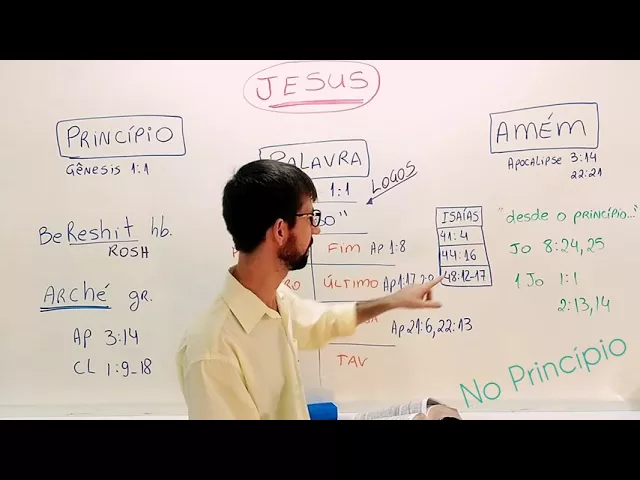 JESUS
PRINCÍPIO
GÊNESIS 1:1
BeReshit hb.
ROSH
ARCHÉ gr.
AP 3:14
CL 1:9-18
PALAVRA
1:1
LOGOS
FIM AP 1:8
ÚLTIMO AP 1:17
AP 21:6, 22:13
TAV
ISAÍAS
41:4
44:16
48:12-17
AMÉM
APOCALIPSE 3:14
22:21
"desde o princípio..."
JO 8:24,25
1 JO 1:1
2:13,14
No Princípio